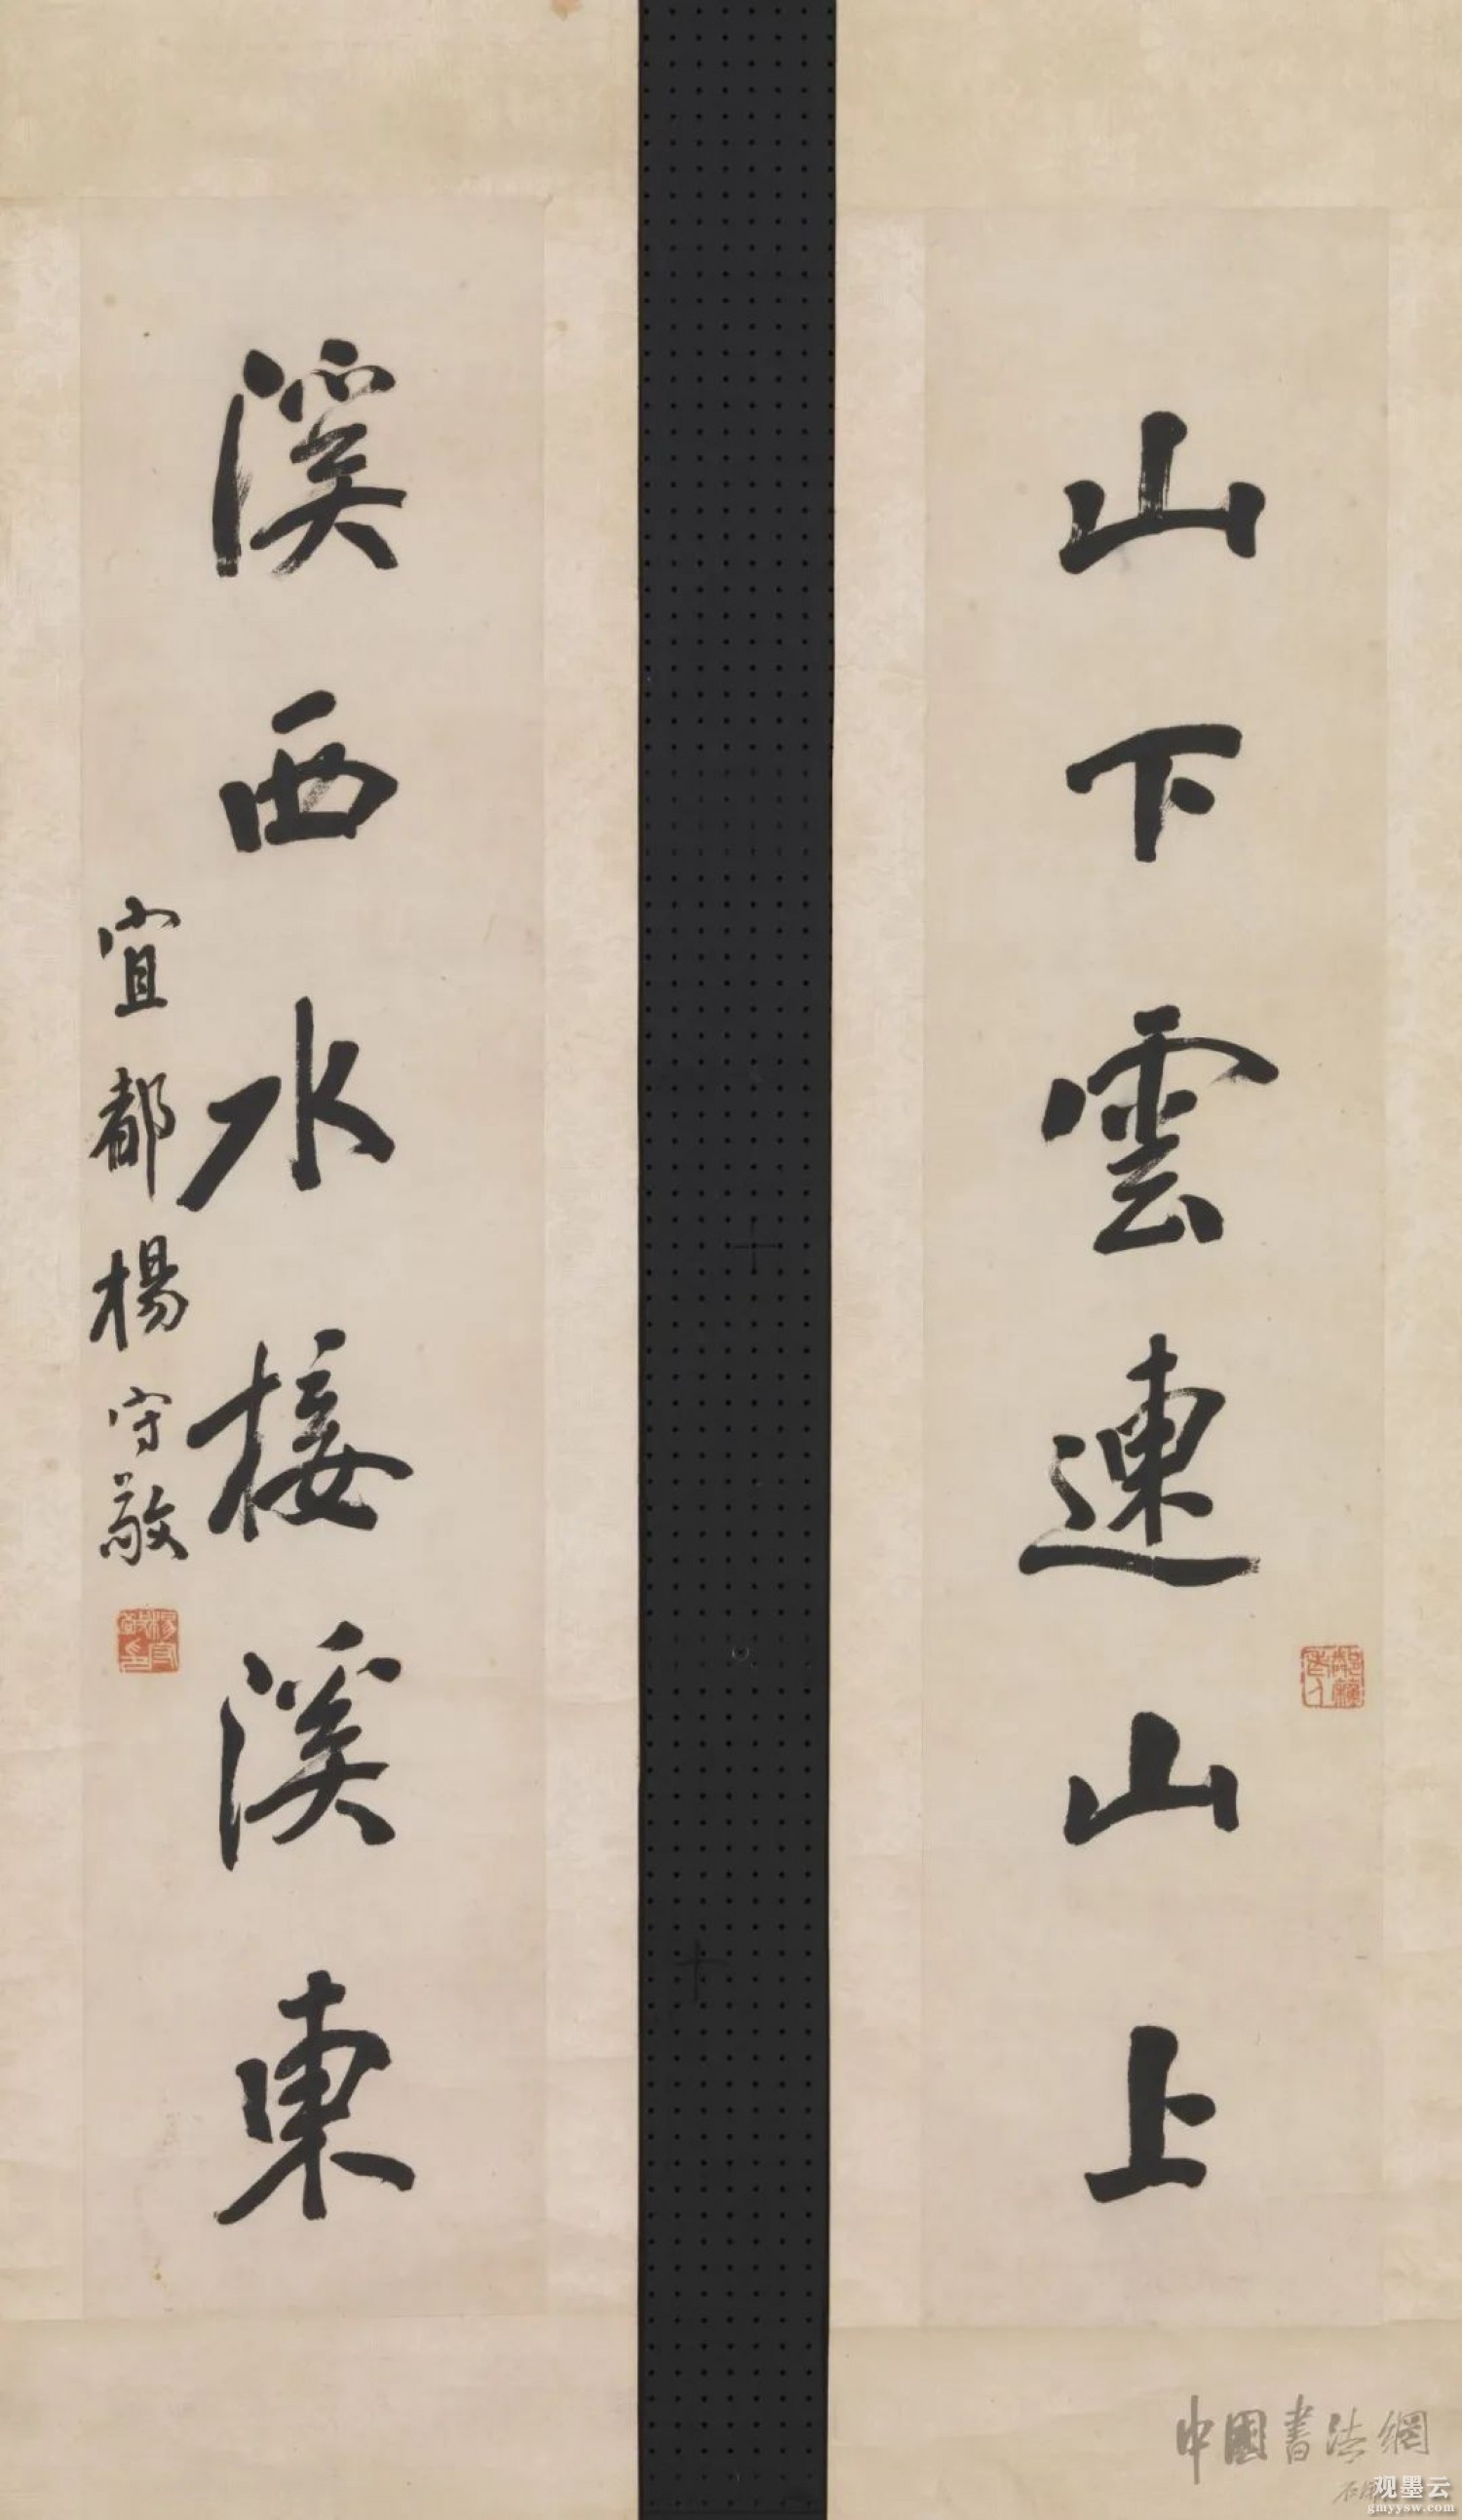 山下雲連山上
溪西水接溪東
宜都楊守敬
楊守敬印
中國書法網
观墨云
gmyysw.com